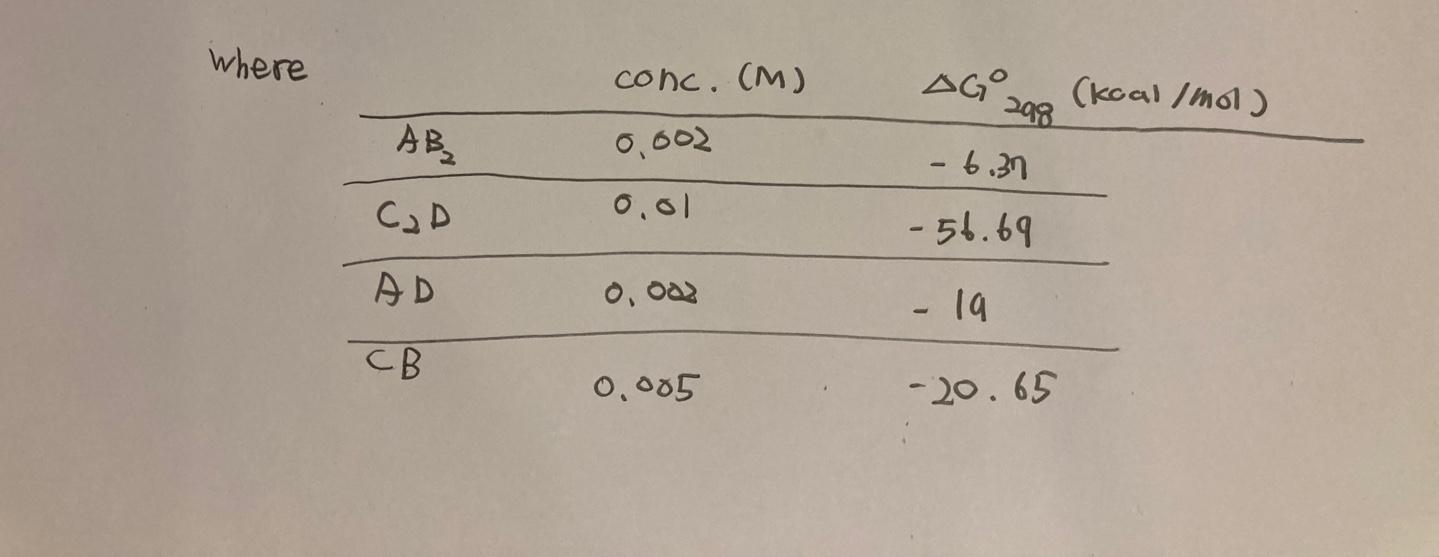 where
conc. (M) ΔG°298 (kcal/mol)
AB2 0.002 -6.37
C2D 0.01 -56.69
AD -19
CB 0.005 -20.65